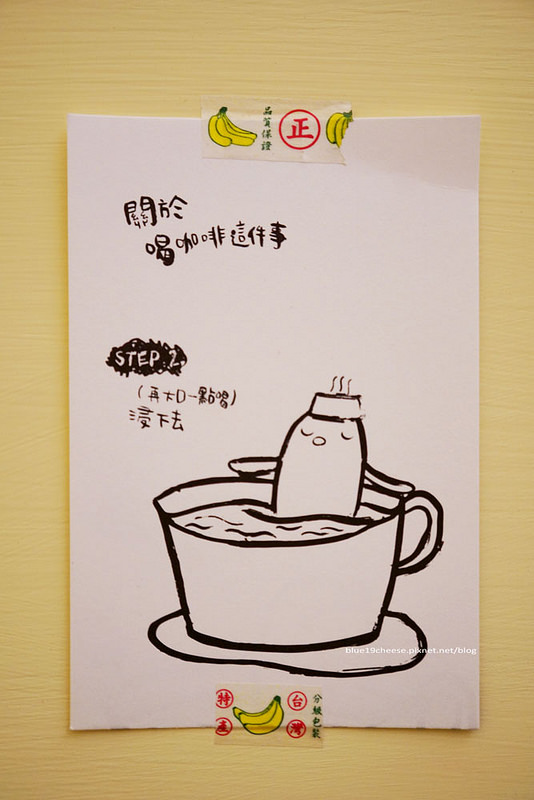 品質保證
正
關於
喝咖啡這件事
STEP 2
(再大口一點喝)
浸下去
blue19cheese.pixnet.net/blog
特產
台灣
分級包裝